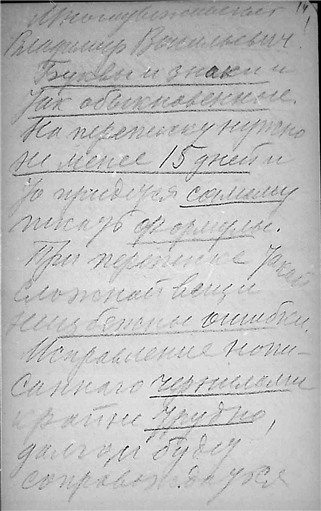 14
Многоуважаемый
Владимир Васильевич.
Буквы и знаки и
так обыкновенные.
На переписку нужно
не менее 15 дней и
то придется самому
писать формулы.
При переписке такой
сложной вещи
неизбежны ошибки.
Исправление напи-
санного чернилами
крайне трудно,
долго, и будет
сопровождаться